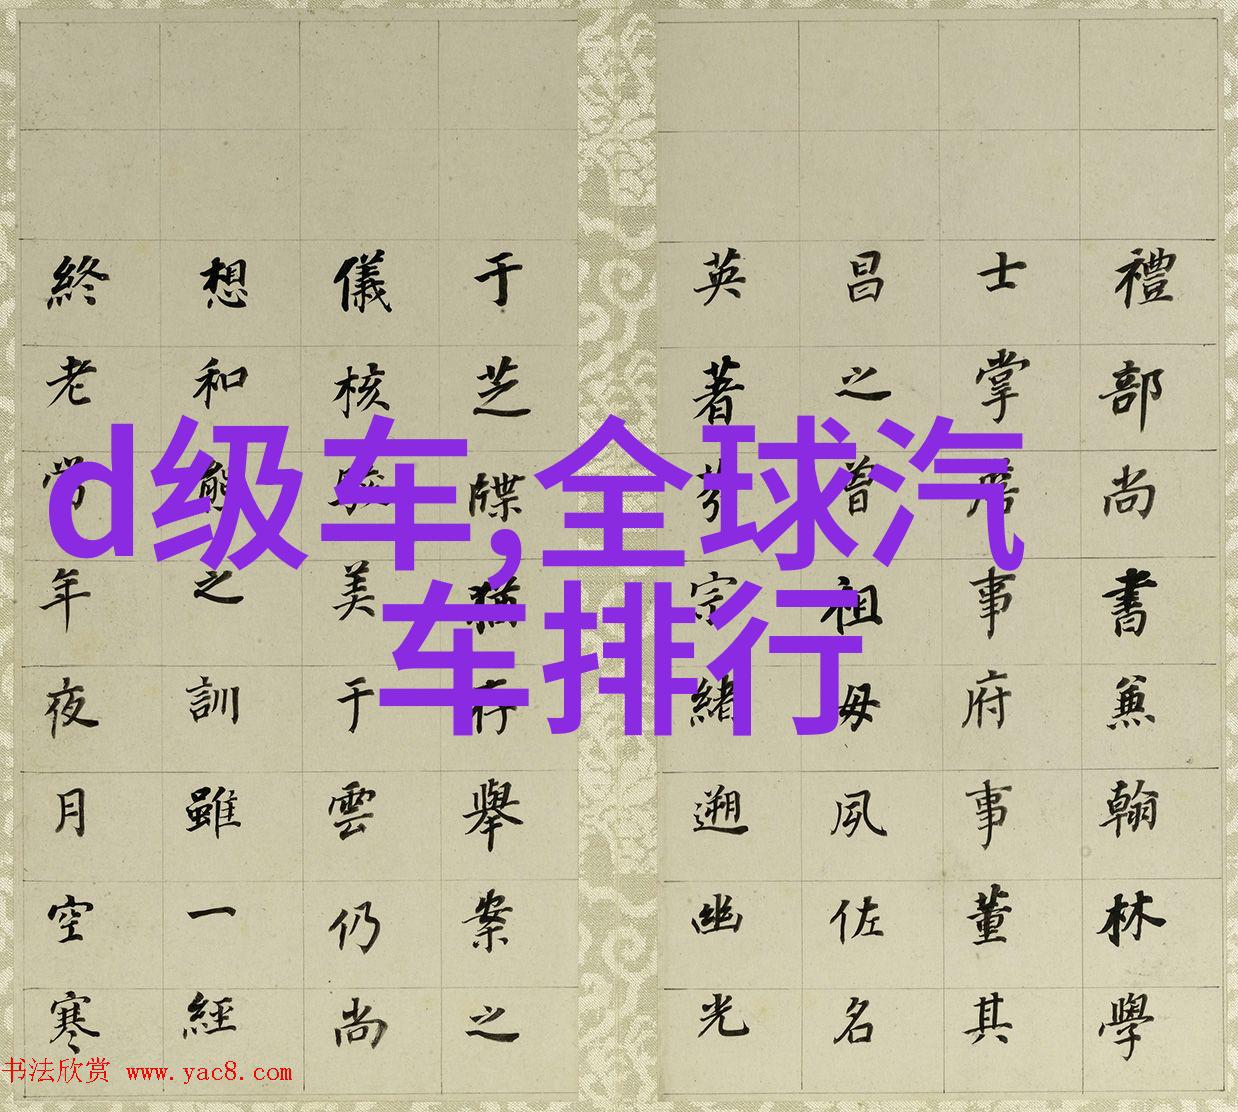 d级车,全球汽
车排行
禮部尚書兼翰林學
士掌詹事府事董其
昌之曾祖母夙佐名
英著宗緒遡幽光
于芝牒猶存舉案之
儀核美于雲仍尚
想和熊之訓雖一經
終老年夜月空寒
书法欣赏 www.yac8.com